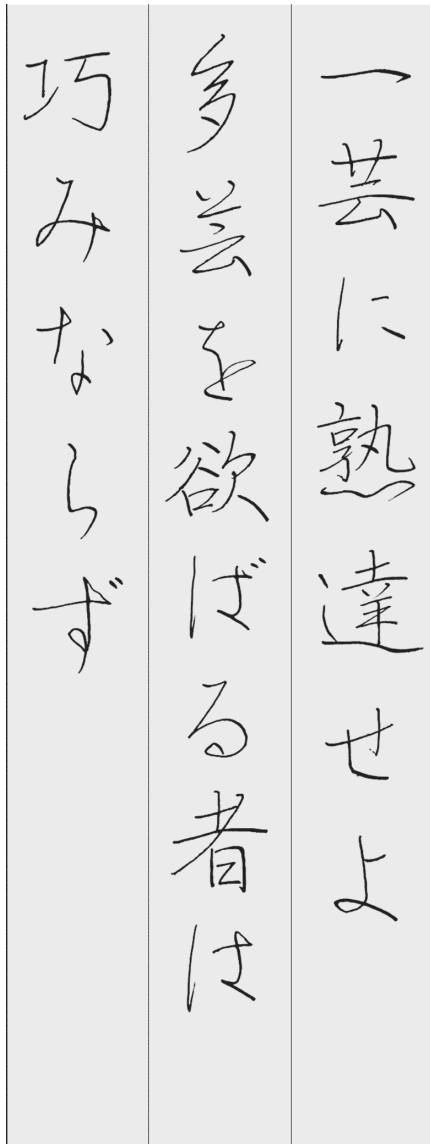 一芸に熟達せよ
多芸を欲ばる者は
巧みならず